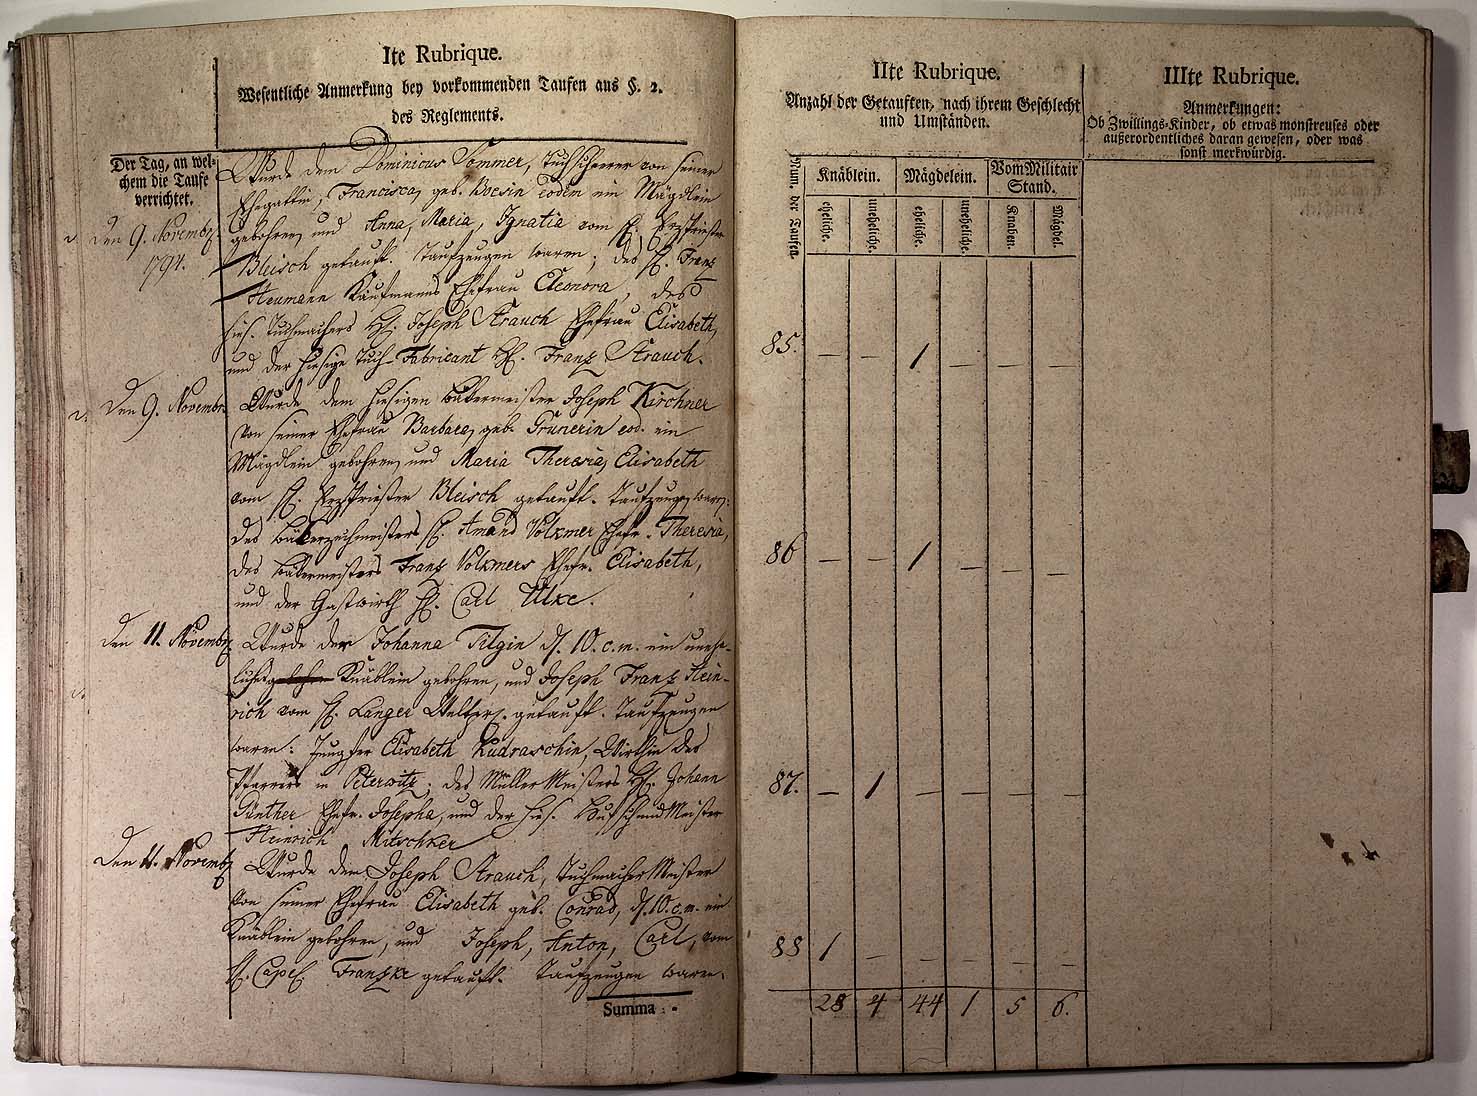 Ite Rubrique.
Wesentliche Anmerkung bey vorkommenden Taufen aus §. 2.
des Reglements.
Der Tag, an wel-
chem die Taufe
verrichtet.
den 9. Novembr.
1794.
Wurde dem Dominicus Sommer, Tuchscherer von seiner
Ehegattin, Francisca, geb. Boesin eodem ein Mägdlein
gebohren, und Anna, Maria, Ignatia vom H. Erzpriester
Bleisch getauft. Taufzeugen waren; des H. Franz
Heumann Kaufmanns Ehefrau Eleonora, des
hies. Tuchmachers H. Joseph Strauch Ehefrau Elisabeth,
und der hiesige Tuch-Fabricant H. Franz Strauch.
Den 9. Novembr.
Wurde dem hiesigen Bäkermeister Joseph Kirchner
von seiner Ehefrau Barbara, geb. Grunerin eod. ein
Mägdlein gebohren, und Maria Theresia, Elisabeth
vom H. Erzpriester Bleisch getauft. Taufzeugen waren:
des Bäkerzechmeisters H. Amand Volkmer Ehefr. Theresia,
des Bäkermeisters Franz Volkmers Ehefr. Elisabeth,
und der Gastwirth H. Carl Ulke.
Den 11. Novembr.
Wurde der Johanna Tilgin d. 10. c. m. ein unehe-
liches Knäblein gebohren, und Joseph Franz Hein-
rich vom H. Langer getauft. Taufzeugen
waren: Jungfer Elisabeth Kudraschin, Wirthin des
Pfarrers in Peterwitz; des Müller Meisters H. Johann
Günther Ehefr. Josepha, und der hies. Hufschmid Meister
Heinrich Mitschker
Den 11. Novembr.
Wurde dem Joseph Strauch, Tuchmacher Meister
von seiner Ehefrau Elisabeth geb. Conrad, d. 10. c. m. ein
Knäblein gebohren, und Joseph, Anton, Carl, vom
H. Capel. Franzke getauft. Taufzeugen waren.
Summa : -
IIte Rubrique.
Anzahl der Getauften, nach ihrem Geschlecht
und Umständen.
Num. der Taufen.
Knäblein. Mägdelein. Vom Militair
Stand.
eheliche. uneheliche. eheliche. uneheliche. Knaben. Mägdel.
85. — — 1 — — —
86 — — 1 — — —
87. — 1 — — — —
88 1 — — — — —
28 4 44 1 5 6.
IIIte Rubrique.
Anmerkungen:
Ob Zwillings-Kinder, ob etwas monstreuses oder
außerordentliches daran gewesen, oder was
sonst merkwürdig.